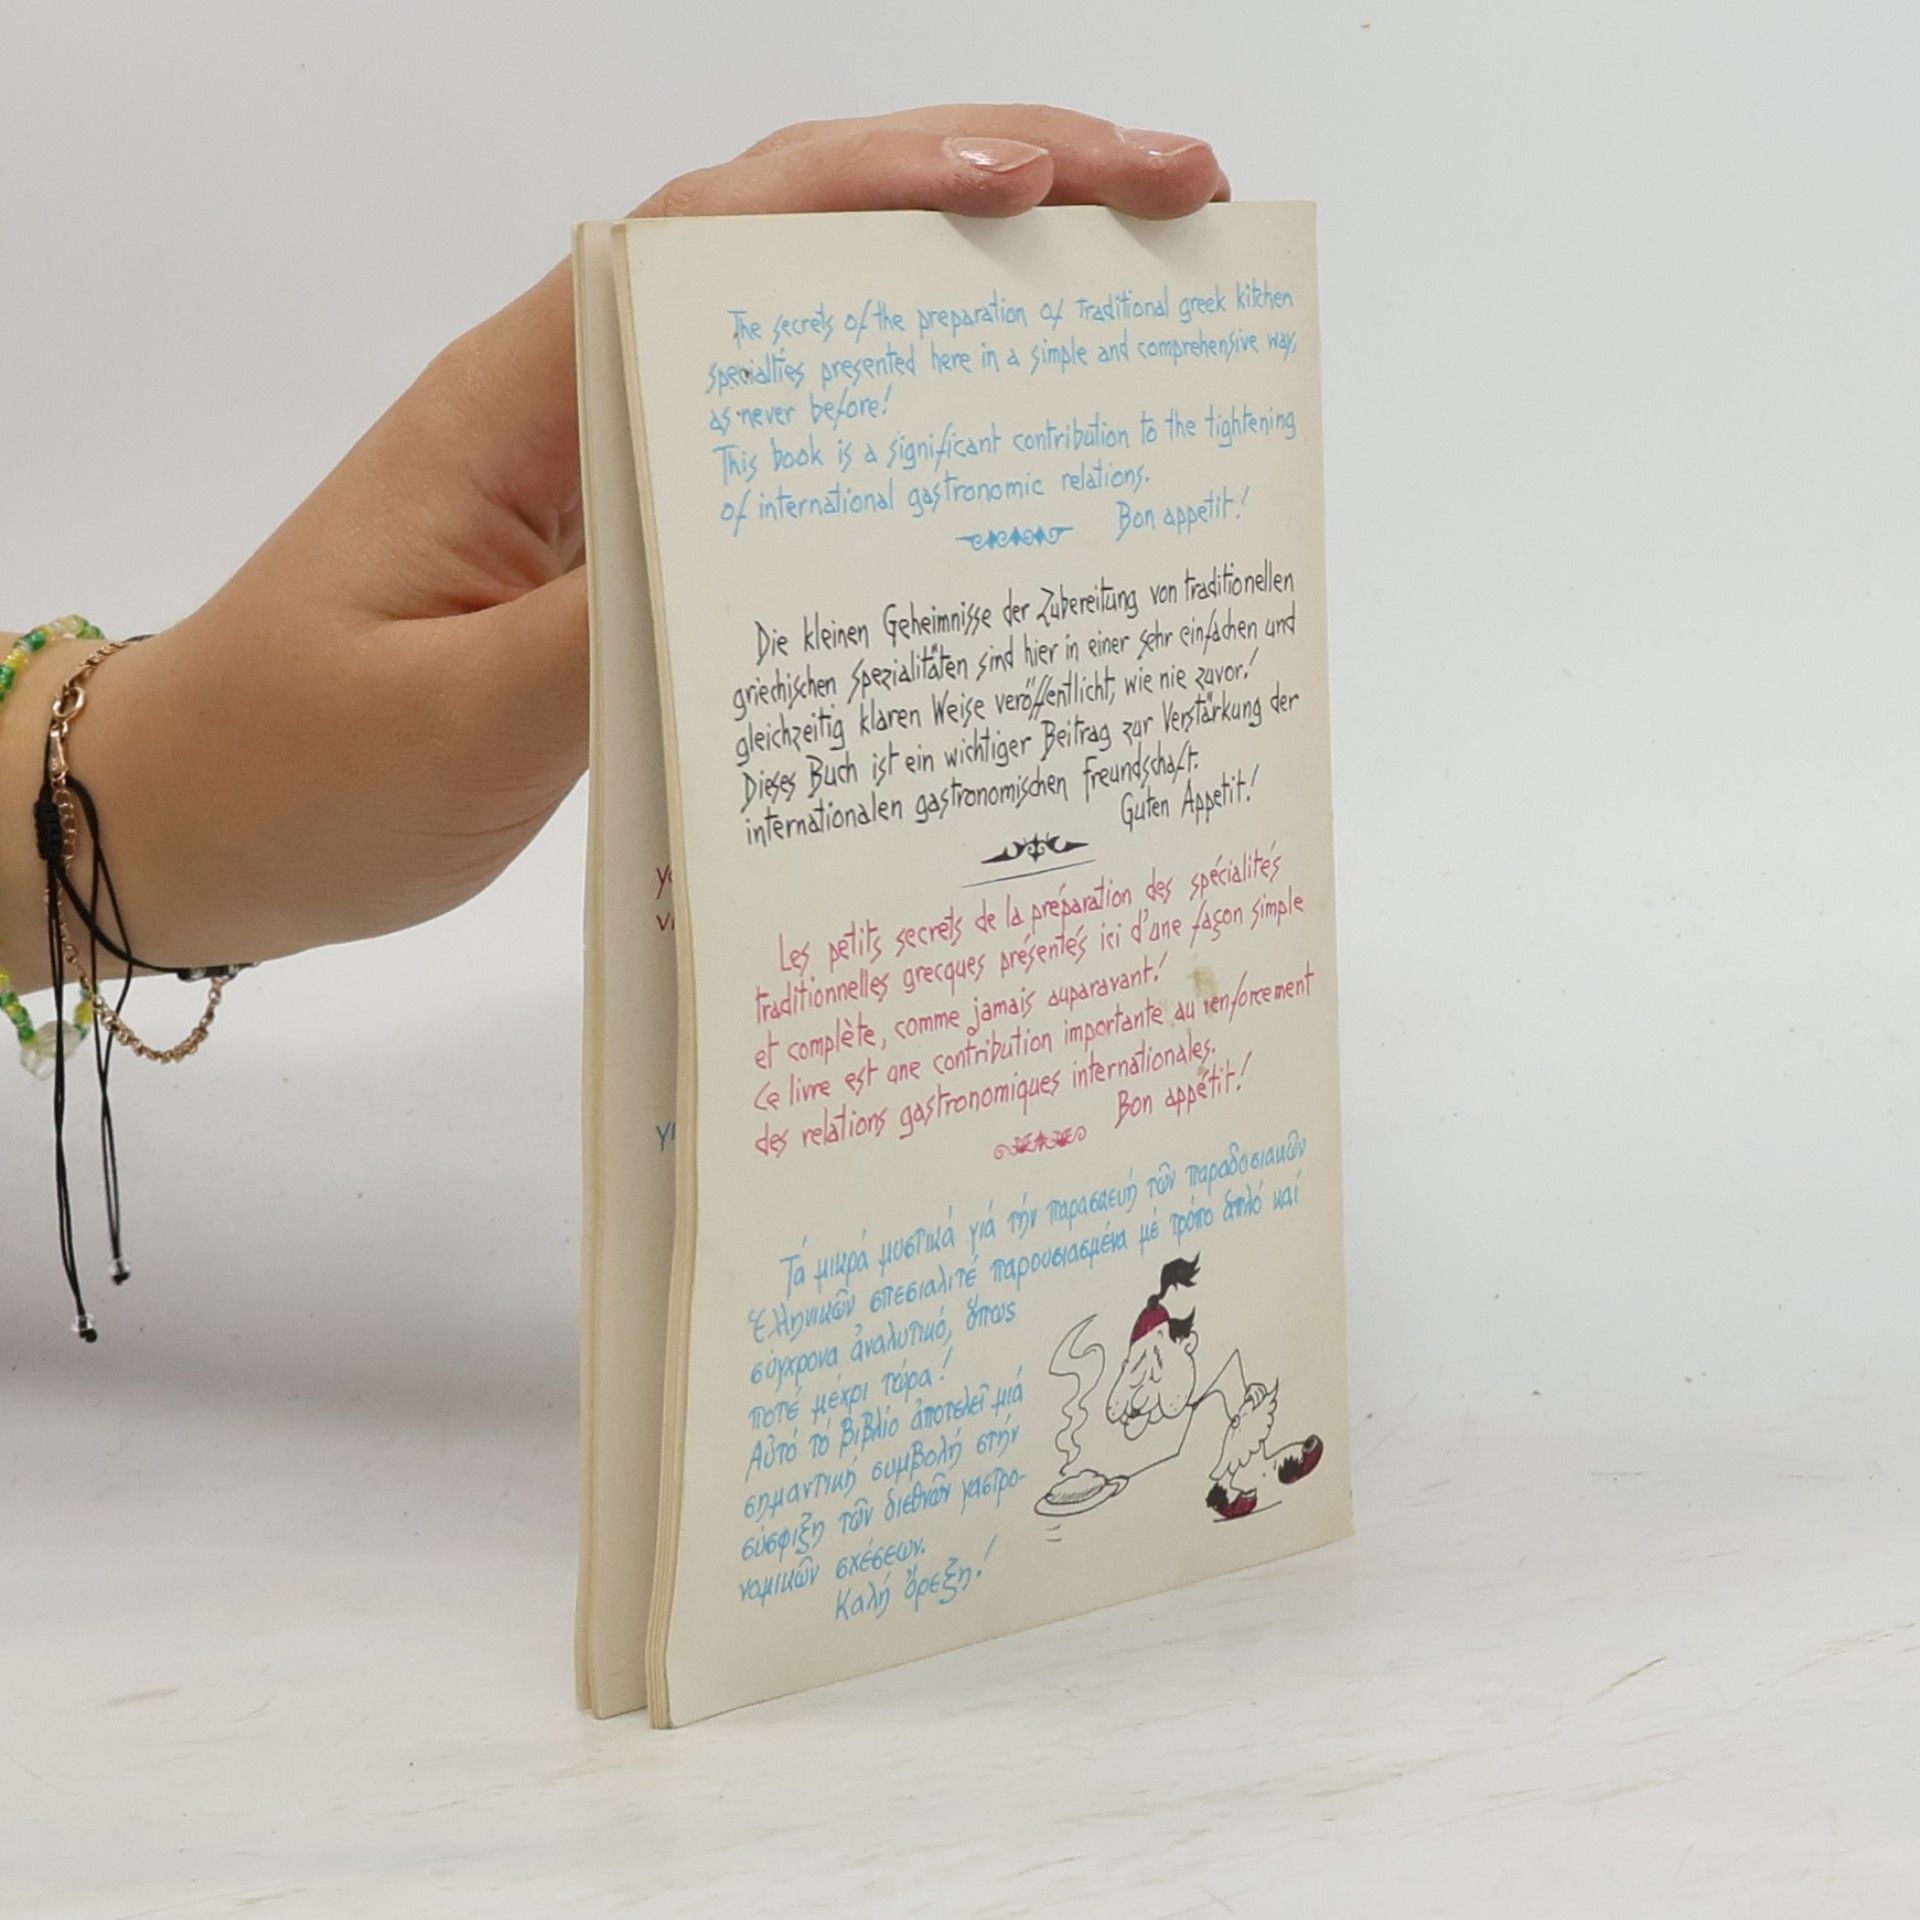 The secrets of the preparation of traditional greek kitchen
specialties presented here in a simple and comprehensive way,
as never before!
This book is a significant contribution to the tightening
of international gastronomic relations.
Bon appetit!
Die kleinen Geheimnisse der Zubereitung von traditionellen
griechischen Spezialitäten sind hier in einer sehr einfachen und
gleichzeitig klaren Weise veröffentlicht, wie nie zuvor!
Dieses Buch ist ein wichtiger Beitrag zur Verstärkung der
internationalen gastronomischen Freundschaft.
Guten Appetit!
Les petits secrets de la préparation des spécialités
traditionnelles grecques présentés ici d'une façon simple
et complète, comme jamais auparavant!
Ce livre est une contribution importante au renforcement
des relations gastronomiques internationales.
Bon appétit!
Τά μικρά μυστικά γιά τήν παρασκευή τῶν παραδοσιακῶν
ἑλληνικῶν σπεσιαλιτέ παρουσιασμένα μέ τρόπο ἁπλό καί
σύγχρονα ἀναλυτικό, ὅπως
ποτέ μέχρι τώρα!
Αὐτό τό βιβλίο ἀποτελεῖ μιά
σημαντική συμβολή στήν
σύσφιξη τῶν διεθνῶν γαστρο-
νομικῶν σχέσεων.
Καλή ὄρεξη!